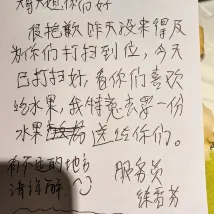 大哥大姐，你们好
很抱歉昨天没来得及
为你们打扫到位，今天
已打扫好，看你们喜欢
吃水果，我特意去买一份
水果送给你们。
有不足的地方
请谅解
服务员
徐雪芳